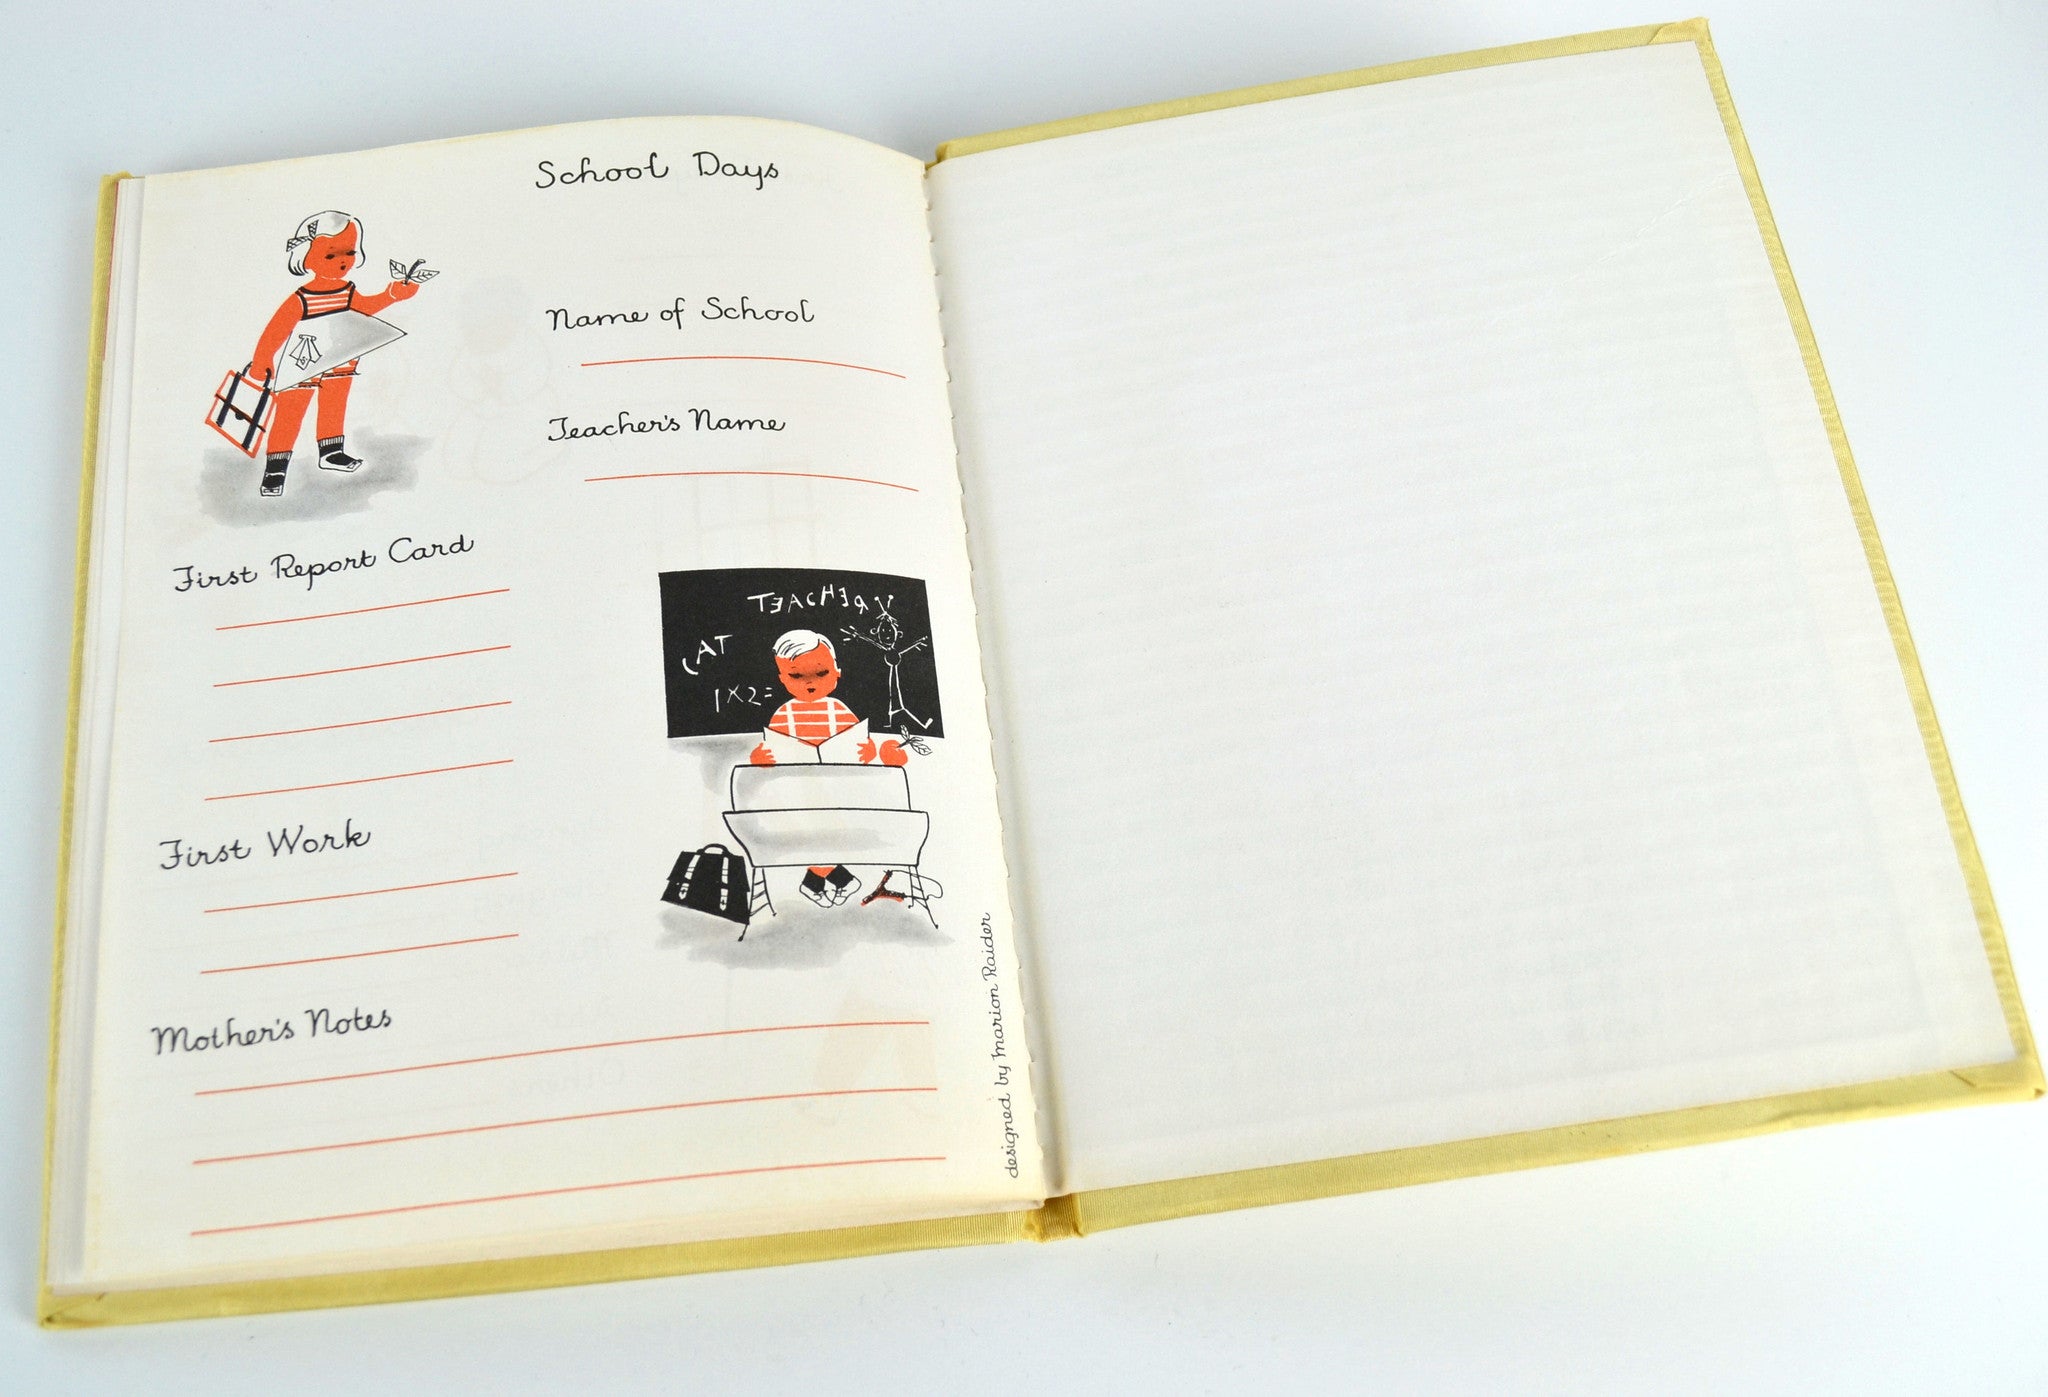 School Days
Name of School
Teacher's Name
First Report Card
TEACHER
CAT
1X2=
First Work
Mother's Notes
designed by Marion Raider